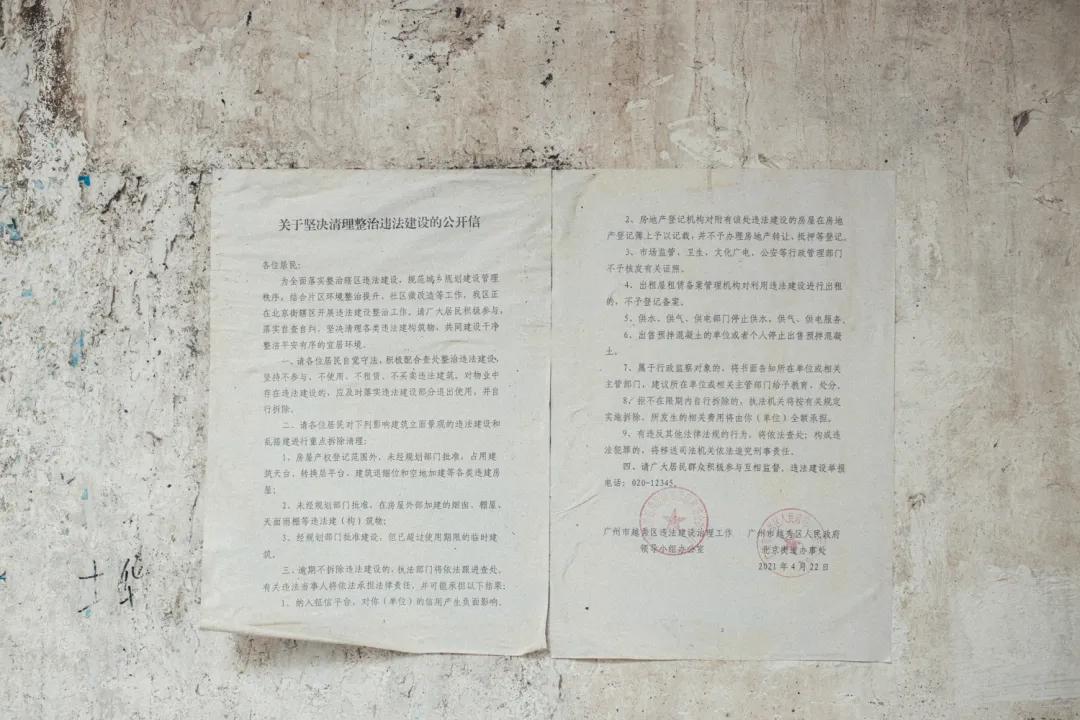 关于坚决清理整治违法建设的公开信
各位居民：
为全面落实整治辖区违法建设，规范城乡规划建设管理
秩序，结合片区环境整治提升、社区微改造等工作，我区正
在北京街辖区开展违法建设整治工作。请广大居民积极参与，
落实自查自纠，坚决清理各类违法建构筑物，共同建设干净
整洁平安有序的宜居环境。
一、请各位居民自觉守法，积极配合查处整治违法建设，
坚持不参与、不使用、不租赁、不买卖违法建筑，对物业中
存在违法建设的，应及时落实违法建设部分退出使用，并自
行拆除。
二、请各位居民对下列影响建筑立面景观的违法建设和
乱搭建进行重点拆除清理：
1、房屋产权登记范围外，未经规划部门批准，占用建
筑天台、转换层平台、建筑退缩位和空地加建等各类违建房
屋；
2、未经规划部门批准，在房屋外部加建的烟囱、棚屋、
天面雨棚等违法建（构）筑物；
3、经规划部门批准建设，但已超过使用期限的临时建
筑。
三、逾期不拆除违法建设的，执法部门将依法跟进查处，
有关违法当事人将依法承担法律责任，并可能承担以下结果：
1、纳入征信平台，对你（单位）的信用产生负面影响。
2、房地产登记机构对附有该处违法建设的房屋在房地
产登记簿上予以记载，并不予办理房地产转让、抵押等登记。
3、市场监管、卫生、文化广电、公安等行政管理部门
不予核发有关证照。
4、出租屋租赁备案管理机构对利用违法建设进行出租
的，不予登记备案。
5、供水、供气、供电部门停止供水、供气、供电服务。
6、出售预拌混凝土的单位或者个人停止出售预拌混凝
土。
7、属于行政监察对象的，将书面告知所在单位或相关
主管部门，建议所在单位或相关主管部门给予教育、处分。
8、拒不在限期内自行拆除的，执法机关将按有关规定
实施拆除，所发生的相关费用将由你（单位）全额承担。
9、有违反其他法律法规的行为，将依法查处；构成违
法犯罪的，将移送司法机关依法追究刑事责任。
四、请广大居民群众积极参与互相监督，违法建设举报
电话：020-12345。
广州市越秀区违法建设治理工作
领导小组办公室
广州市越秀区人民政府
北京街道办事处
2021 年 4 月 22 日
2